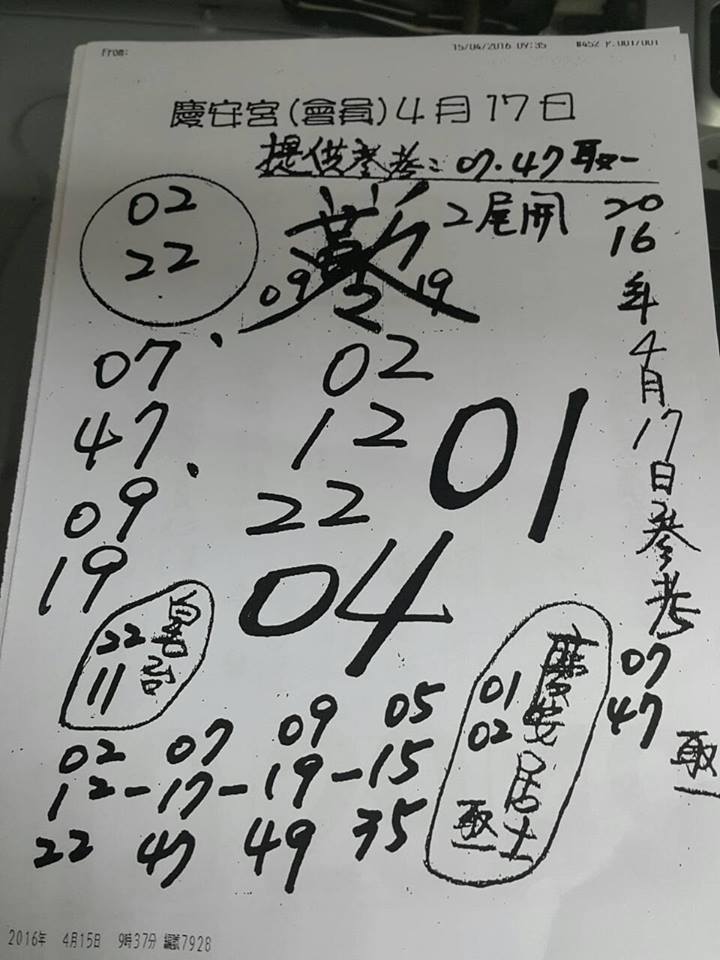 From: 15/04/2016 09:35 #452 P.001/001
慶安宮(會員)4月17日
提供參考:07.47取一
02
22
2尾開
09 2 19
2016年4月17日參考
07
47
取一
07
47
09
19
02
12
22
01
04
22
11
慶安居士
01
02
取一
02 07 09 05
12-17-19-15
22 47 49 35
2016年 4月15日 9時37分 編號7928